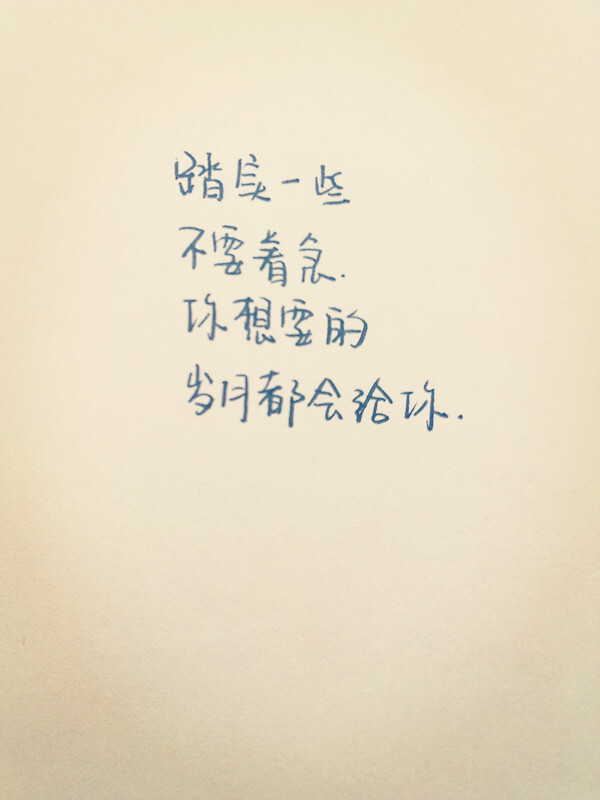 踏实一些
不要着急.
你想要的
岁月都会给你.